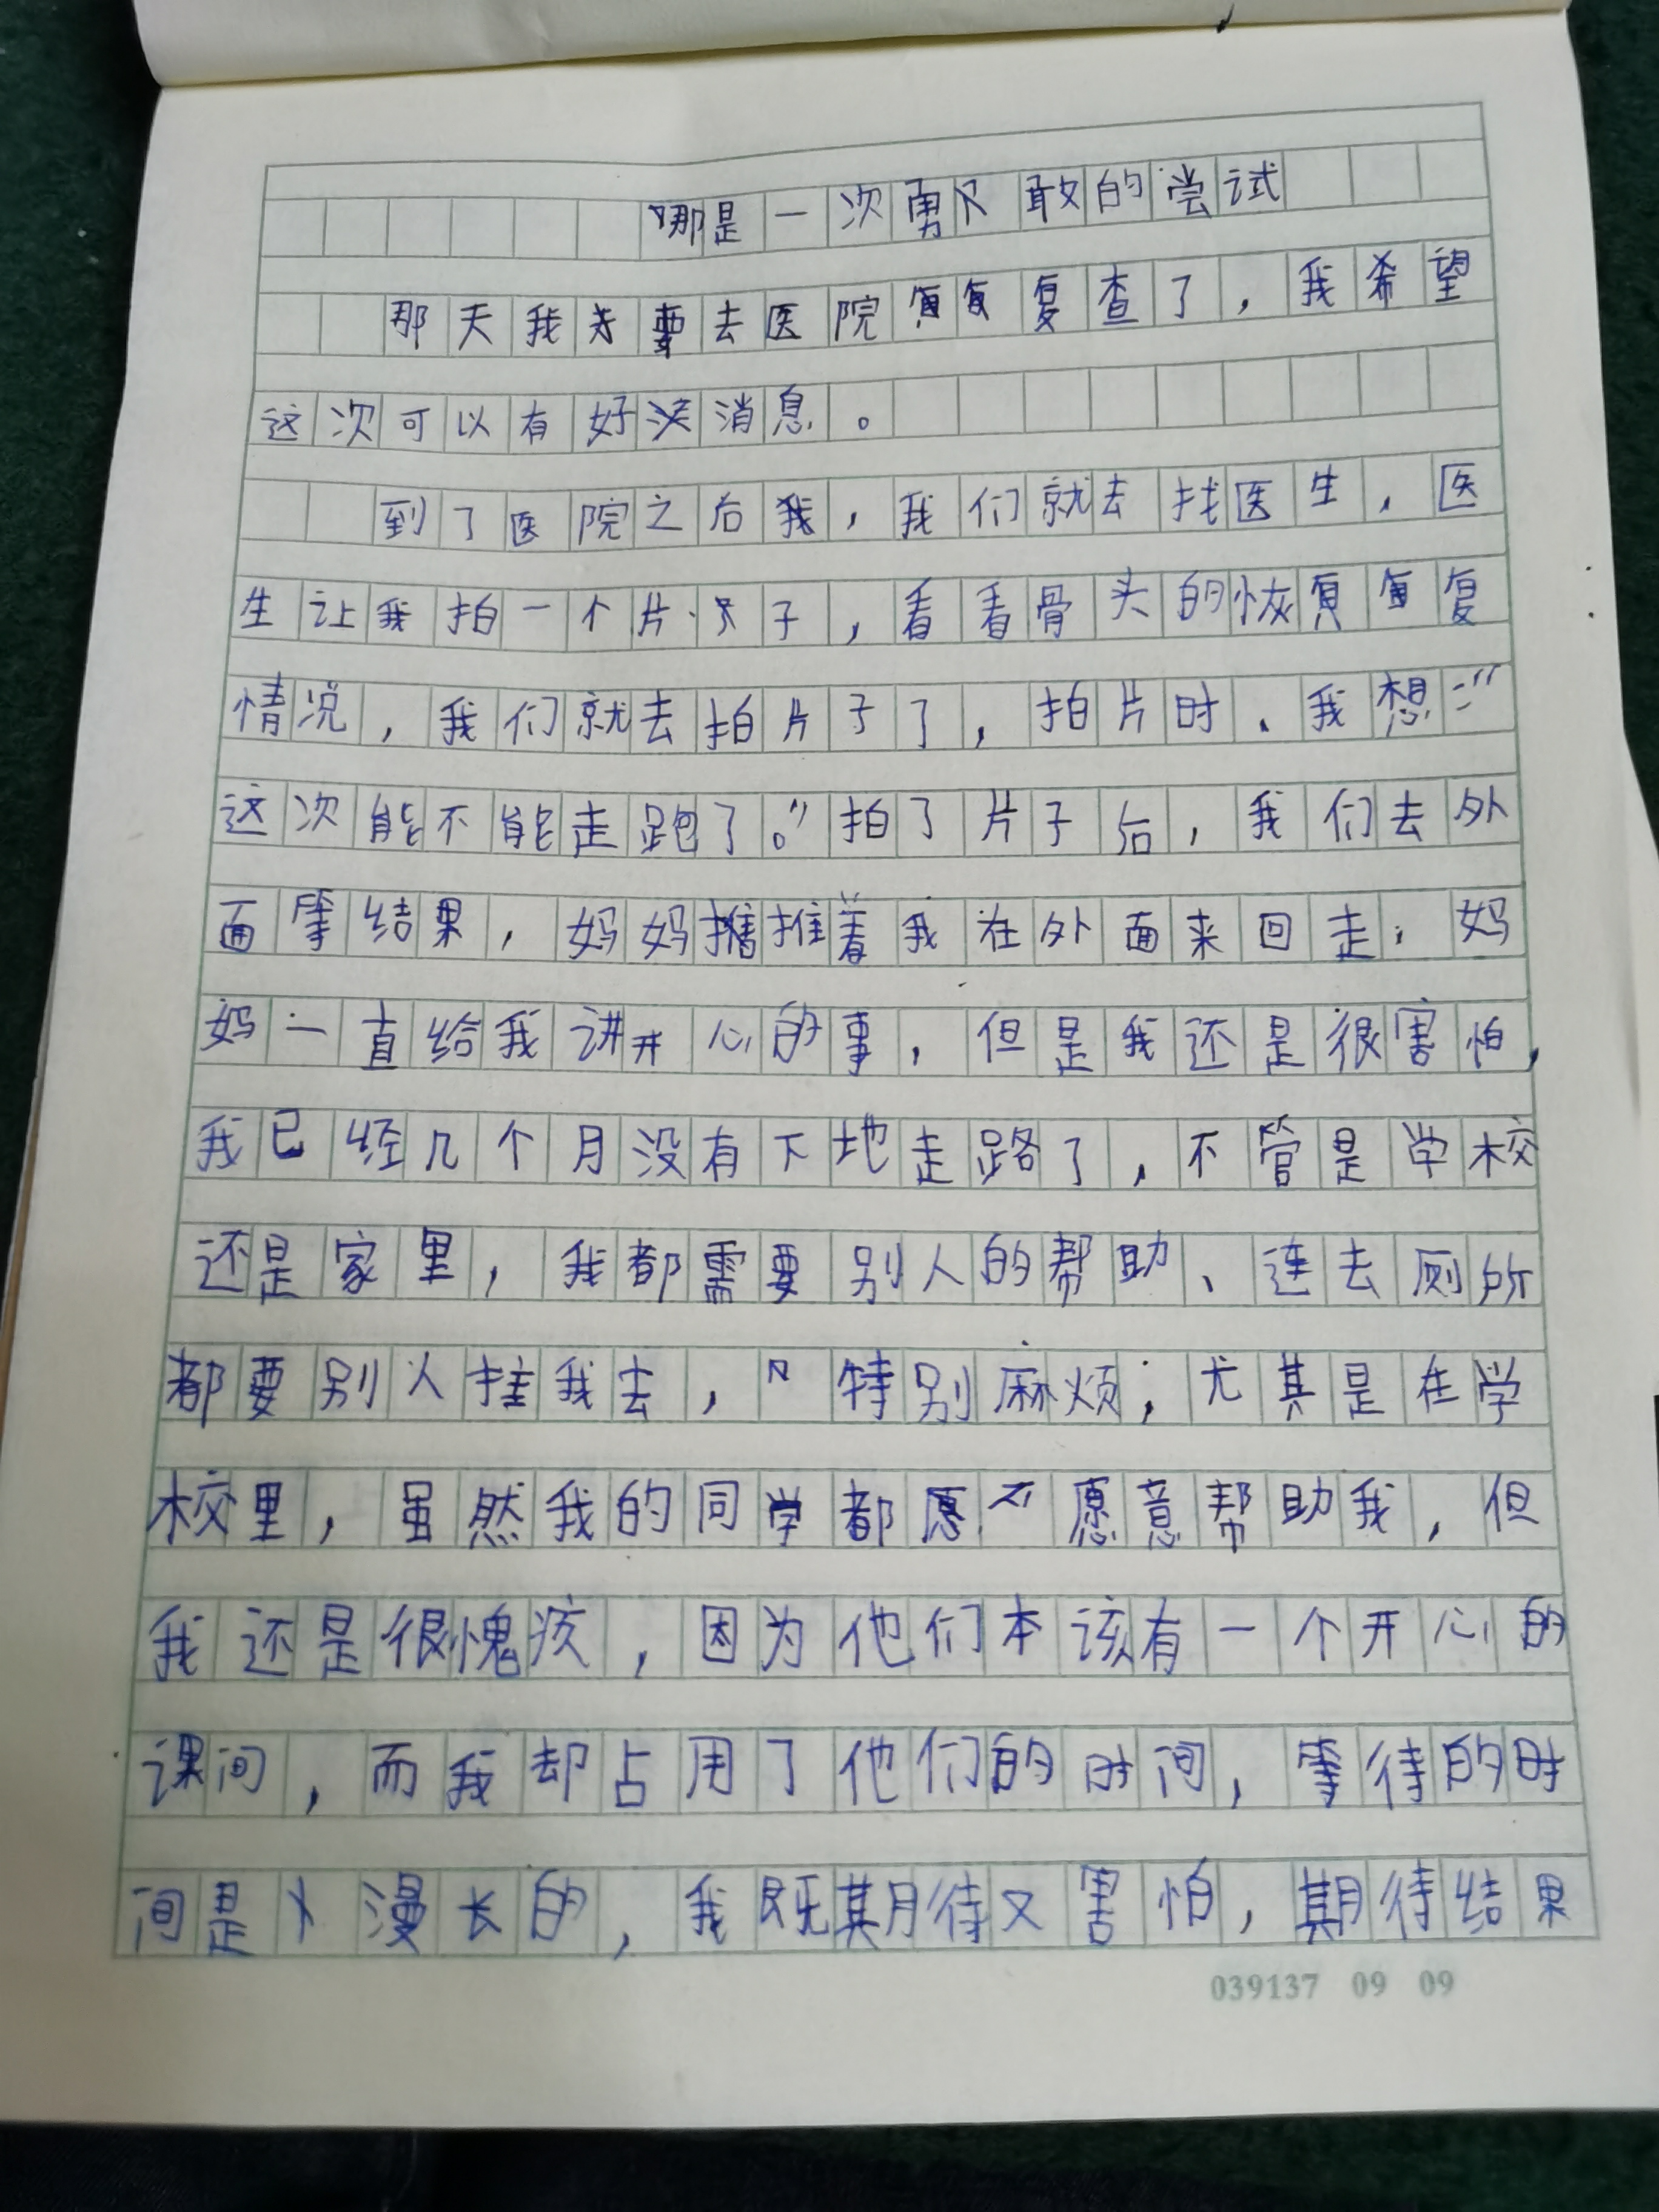 那是一次勇敢的尝试
那天我要去医院复查了，我希望
这次可以有好消息。
到了医院之后，我们就去找医生，医
生让我拍一个片子，看看骨头的恢复
情况，我们就去拍片子了，拍片时、我想：“
这次能不能走跑了。”拍了片子后，我们去外
面等结果，妈妈推着我在外面来回走，妈
妈一直给我讲开心的事，但是我还是很害怕，
我已经几个月没有下地走路了，不管是学校
还是家里，我都需要别人的帮助、连去厕所
都要别人推我去，特别麻烦；尤其是在学
校里，虽然我的同学都愿意帮助我，但
我还是很愧疚，因为他们本该有一个开心的
课间，而我却占用了他们的时间，等待的时
间是漫长的，我既期待又害怕，期待结果
039137 09 09